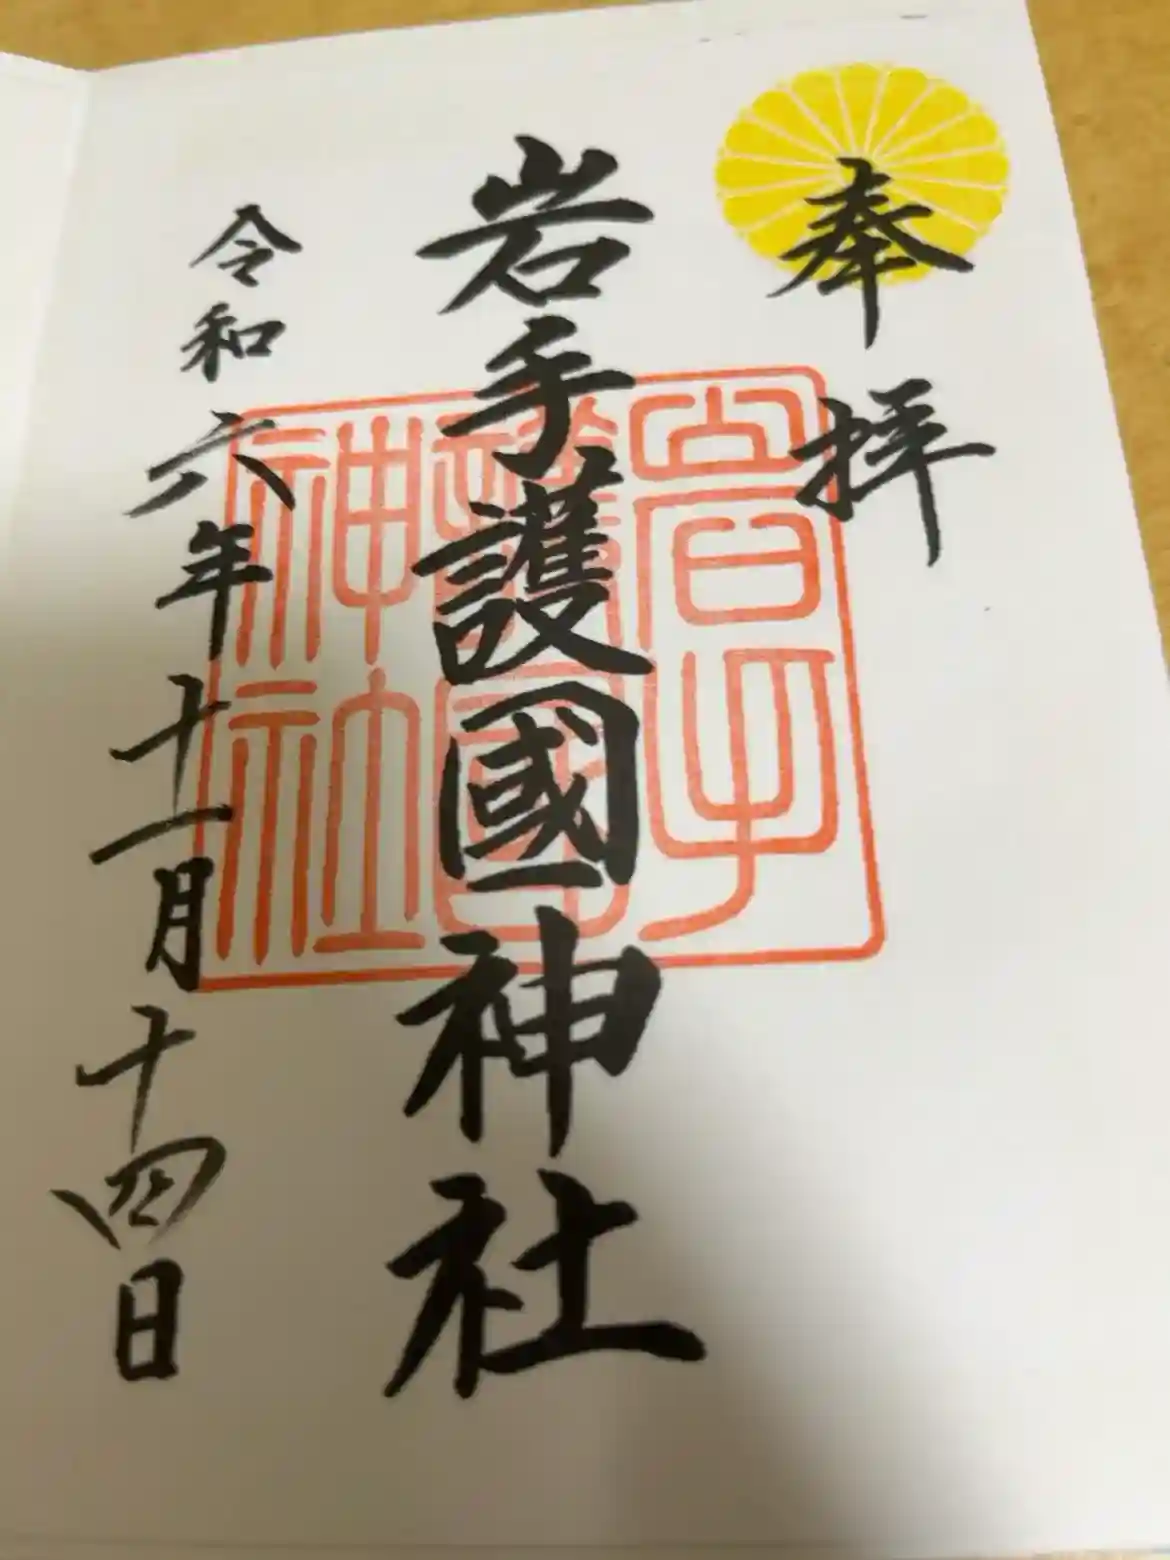 奉拝
岩手護國神社
岩手
護國
神社
令和六年十一月十四日